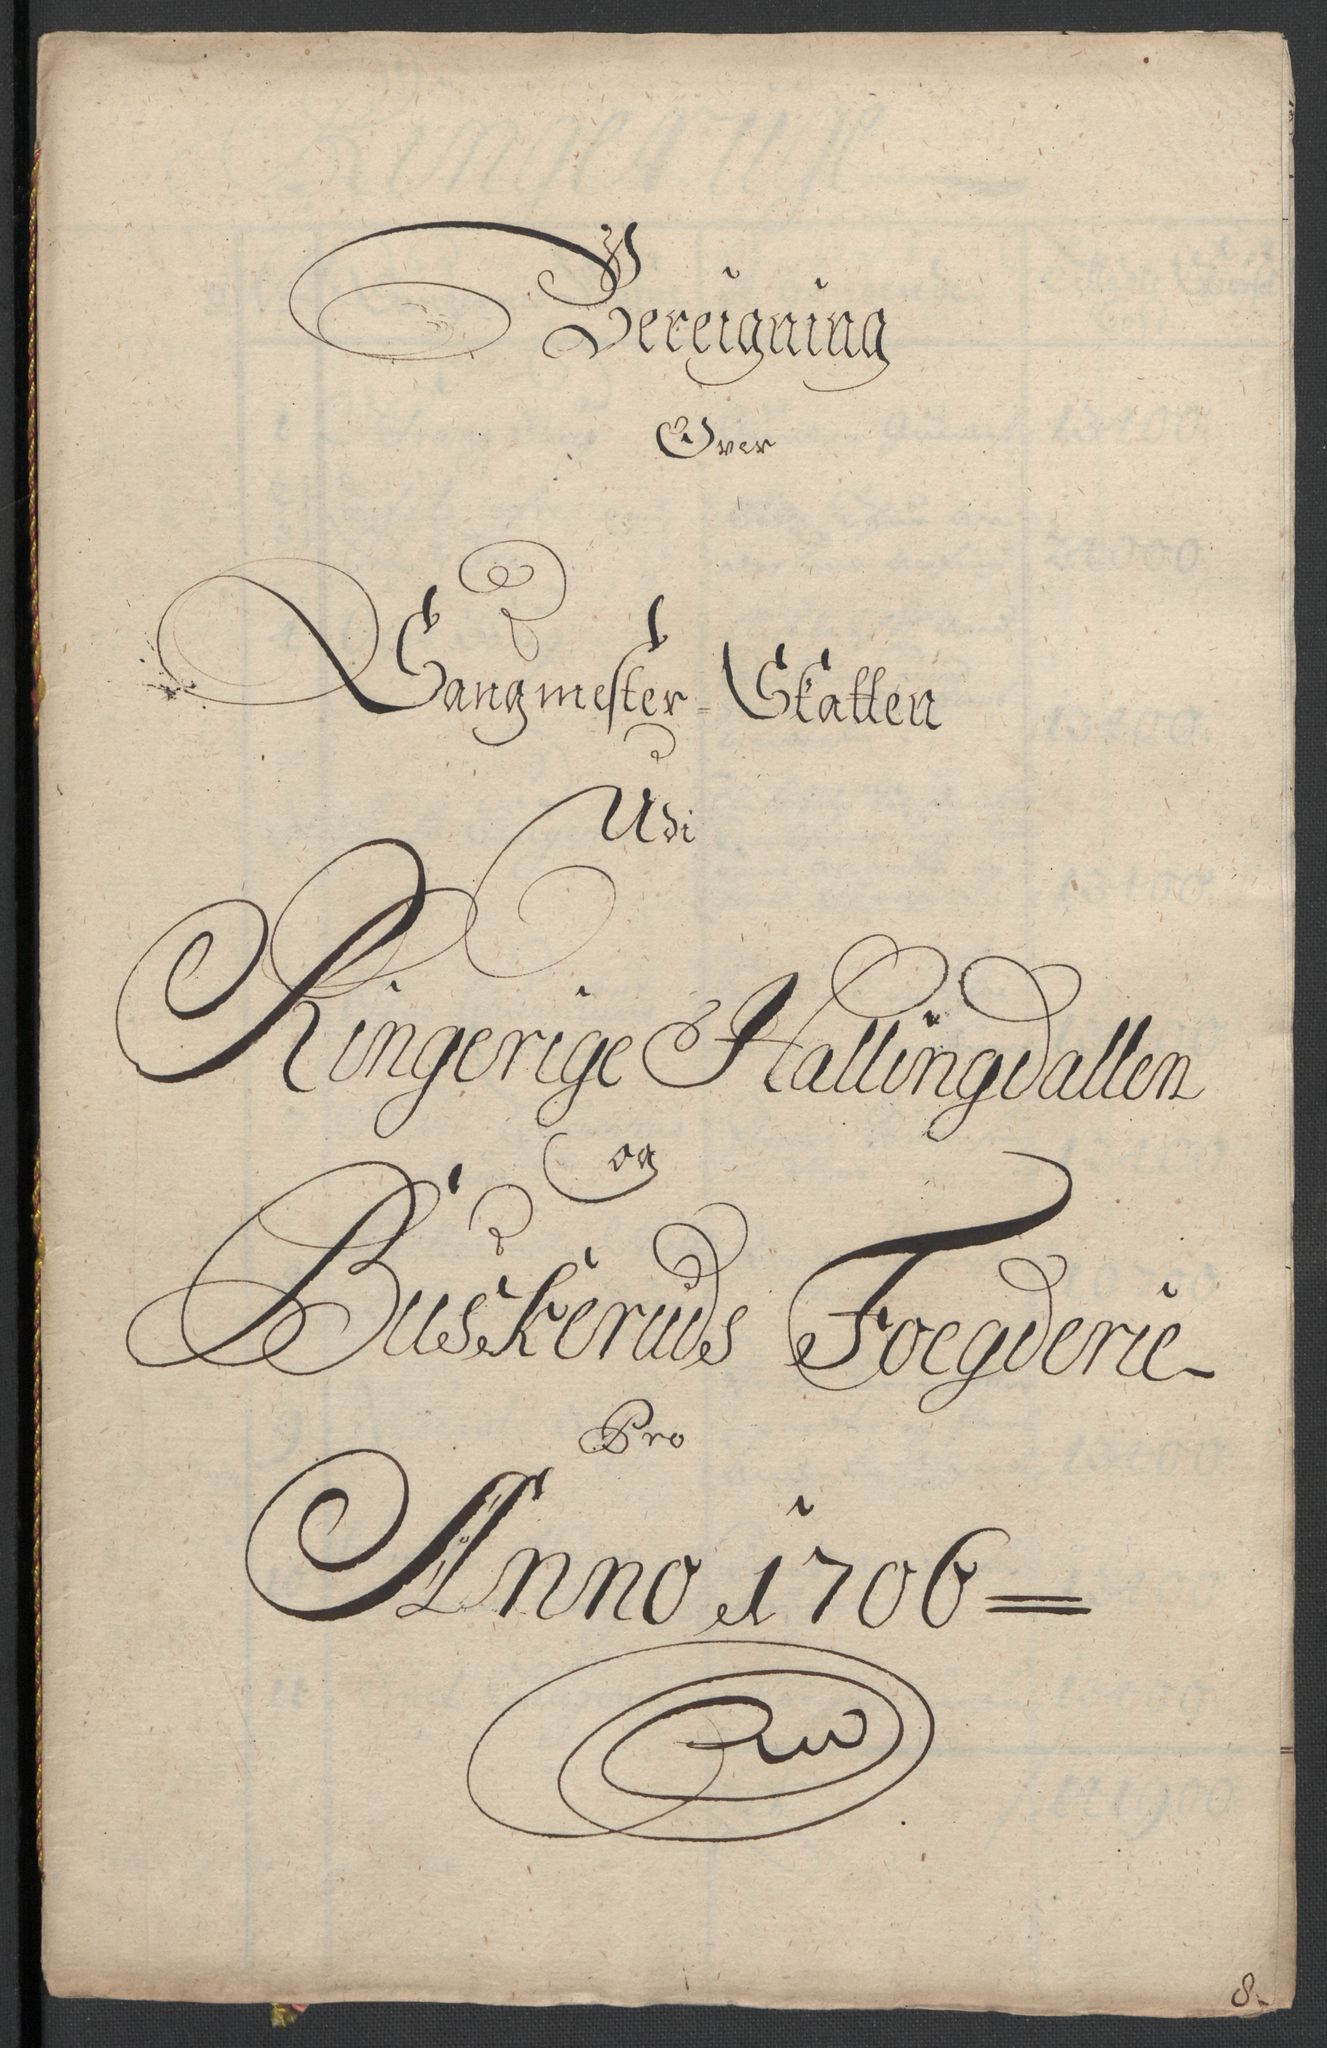 Bereigning
Over
Sangmester = Skatten
Udi
Ringerige Hallingdallen
og
Buskeruds Foegderie
Pro
Anno 1706 =
8.